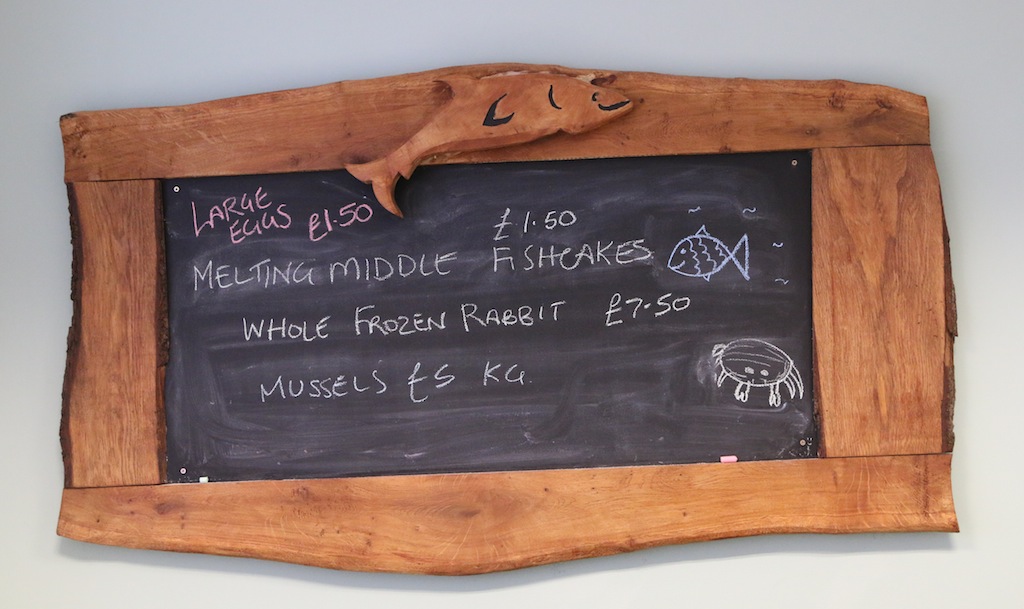 LARGE
EGGS £1.50
£1.50
MELTING MIDDLE FISHCAKES
WHOLE FROZEN RABBIT £7.50
MUSSELS £5 KG.